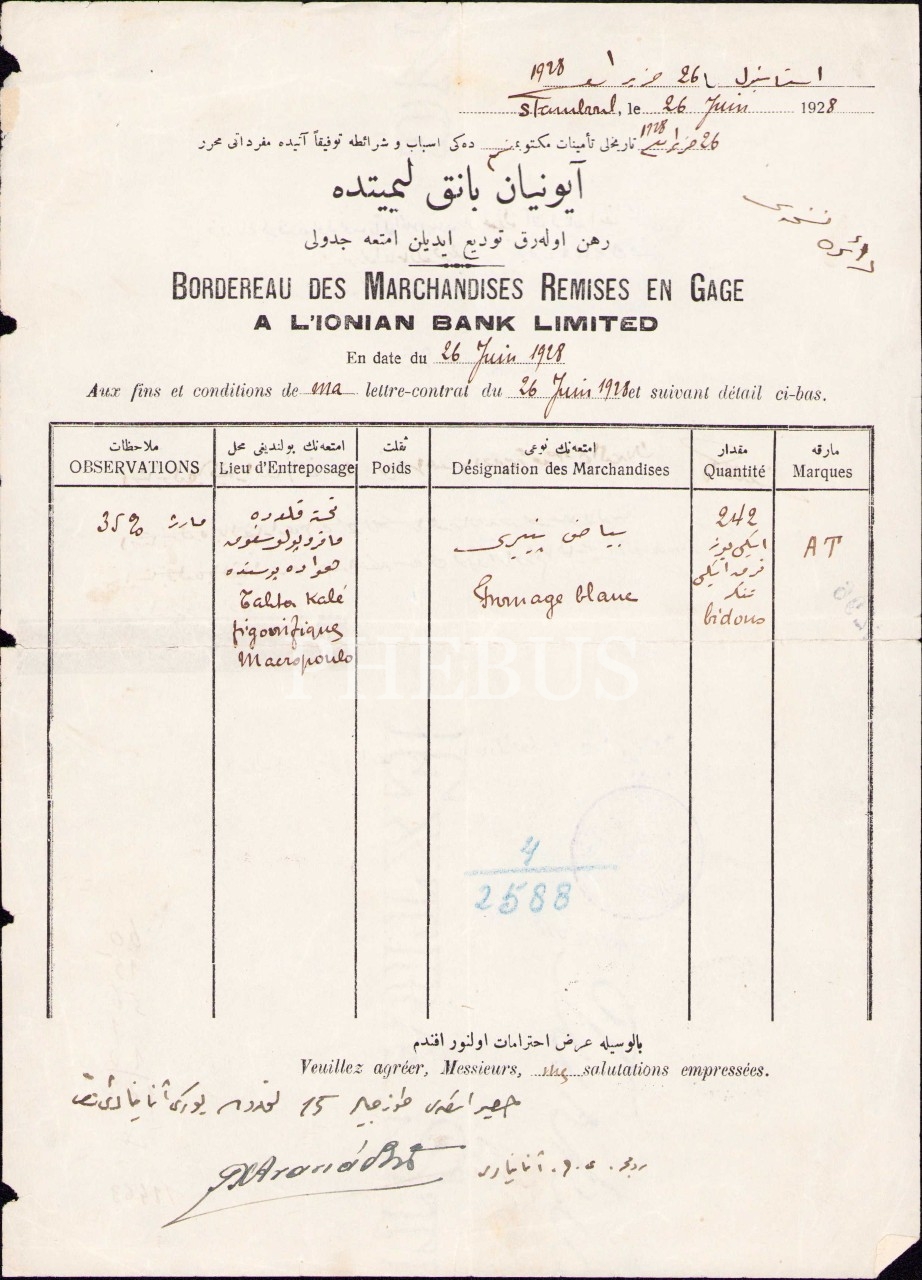 استانبول 26 حزيران 1928
Stamboul, le 26 Juin 1928
26 حزيران 1928 تاريخلى تأمينات مكتوبمده كى اسباب و شرائطه توفيقاً آتيده مفرداتى محرر
آيونيان بانق ليميتده
رهن اوله‌رق توديع ايديلن امتعه جدولى
BORDEREAU DES MARCHANDISES REMISES EN GAGE
A L'IONIAN BANK LIMITED
En date du 26 Juin 1928
Aux fins et conditions de ma lettre-contrat du 26 Juin 1928 et suivant détail ci-bas.
ملاحظات
OBSERVATIONS
امتعه‌نك بولنديغى محل
Lieu d'Entreposage
ثقلت
Poids
امتعه‌نك نوعى
Désignation des Marchandises
مقدار
Quantité
مارقه
Marques
مارژ 35%
تخته قلعه‌ده
Tahta Kalé
frigorifique
Macropoulo
بياض پينيرى
Fromage blanc
242
ايكى يوز
قرق ايكى
تنكه
bidons
AT
PHEBUS
4
2588
بالوسيله عرض احترامات اولنور افندم
Veuillez agréer, Messieurs, mes salutations empressées.
15